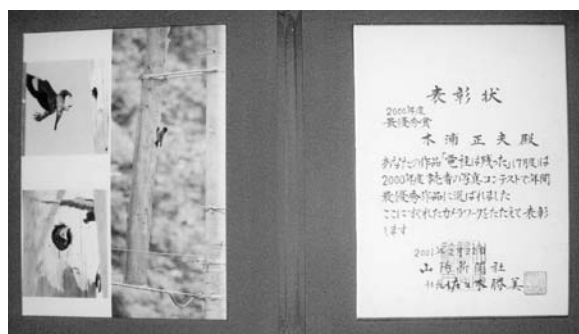 表彰状
2000年度
最優秀賞
木浦正夫殿
あなたの作品「電柱は残った」(7月度)は
2000年度読者の写真コンテストで年間
最優秀作品に選ばれました
ここにすぐれたカメラワークをたたえて表彰
します
2001年2月22日
山陽新聞社
社長佐々木勝美